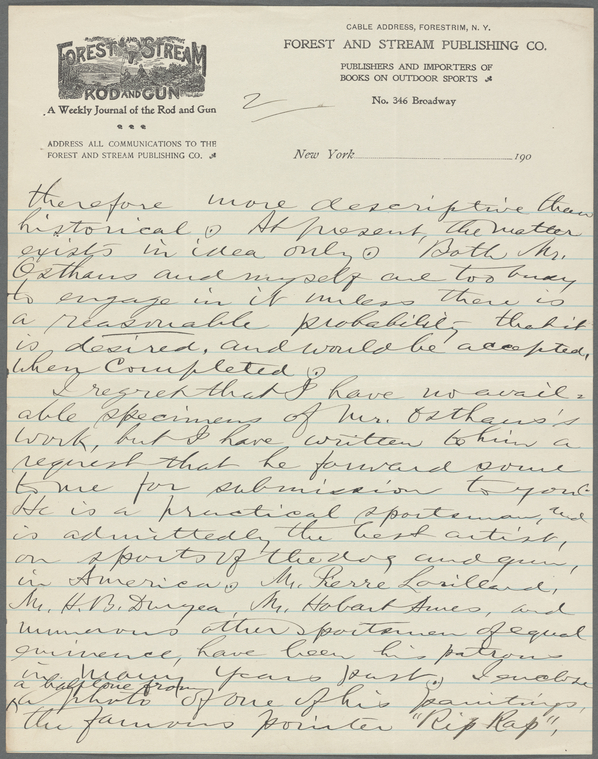 CABLE ADDRESS, FORESTRIM, N. Y.
FOREST AND STREAM PUBLISHING CO.
PUBLISHERS AND IMPORTERS OF
BOOKS ON OUTDOOR SPORTS
No. 346 Broadway
FOREST AND STREAM
ROD AND GUN
A Weekly Journal of the Rod and Gun
ADDRESS ALL COMMUNICATIONS TO THE
FOREST AND STREAM PUBLISHING CO.
2
New York 190
therefore more descriptive than
historical. At present, the matter
exists in idea only. Both Mr.
Osthaus and myself are too busy
to engage in it unless there is
a reasonable probability that it
is desired, and would be accepted,
when completed.
I regret that I have no avail=
able specimens of Mr. Osthaus's
work, but I have written to him a
request that he forward some
to me for submission to you.
He is a practical sportsman, and
is admittedly the best artist,
on sports of the dog and gun,
in America. Mr. Pierre Lorillard,
Mr. H. B. Duryea, Mr. Hobart Ames, and
numerous other sportsmen of equal
eminence, have been his patrons
in many years past. I enclose
a halftone from
a photo of one of his paintings,
the famous pointer "Rip Rap",